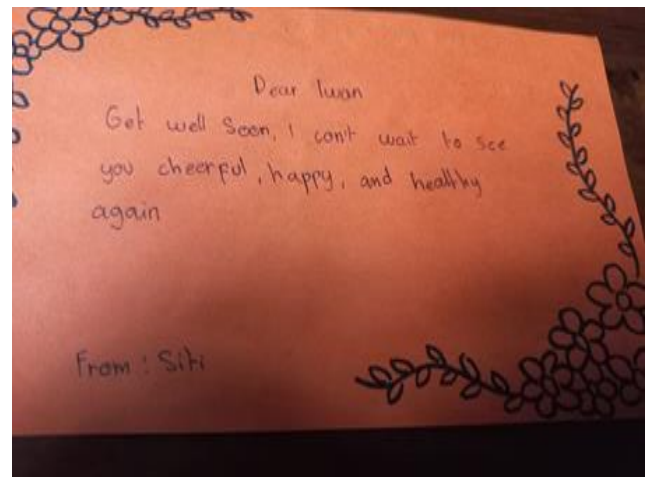 Dear Iwan
Get well Soon, I can't wait to see
you cheerful, happy, and healthy
again
From : Siti